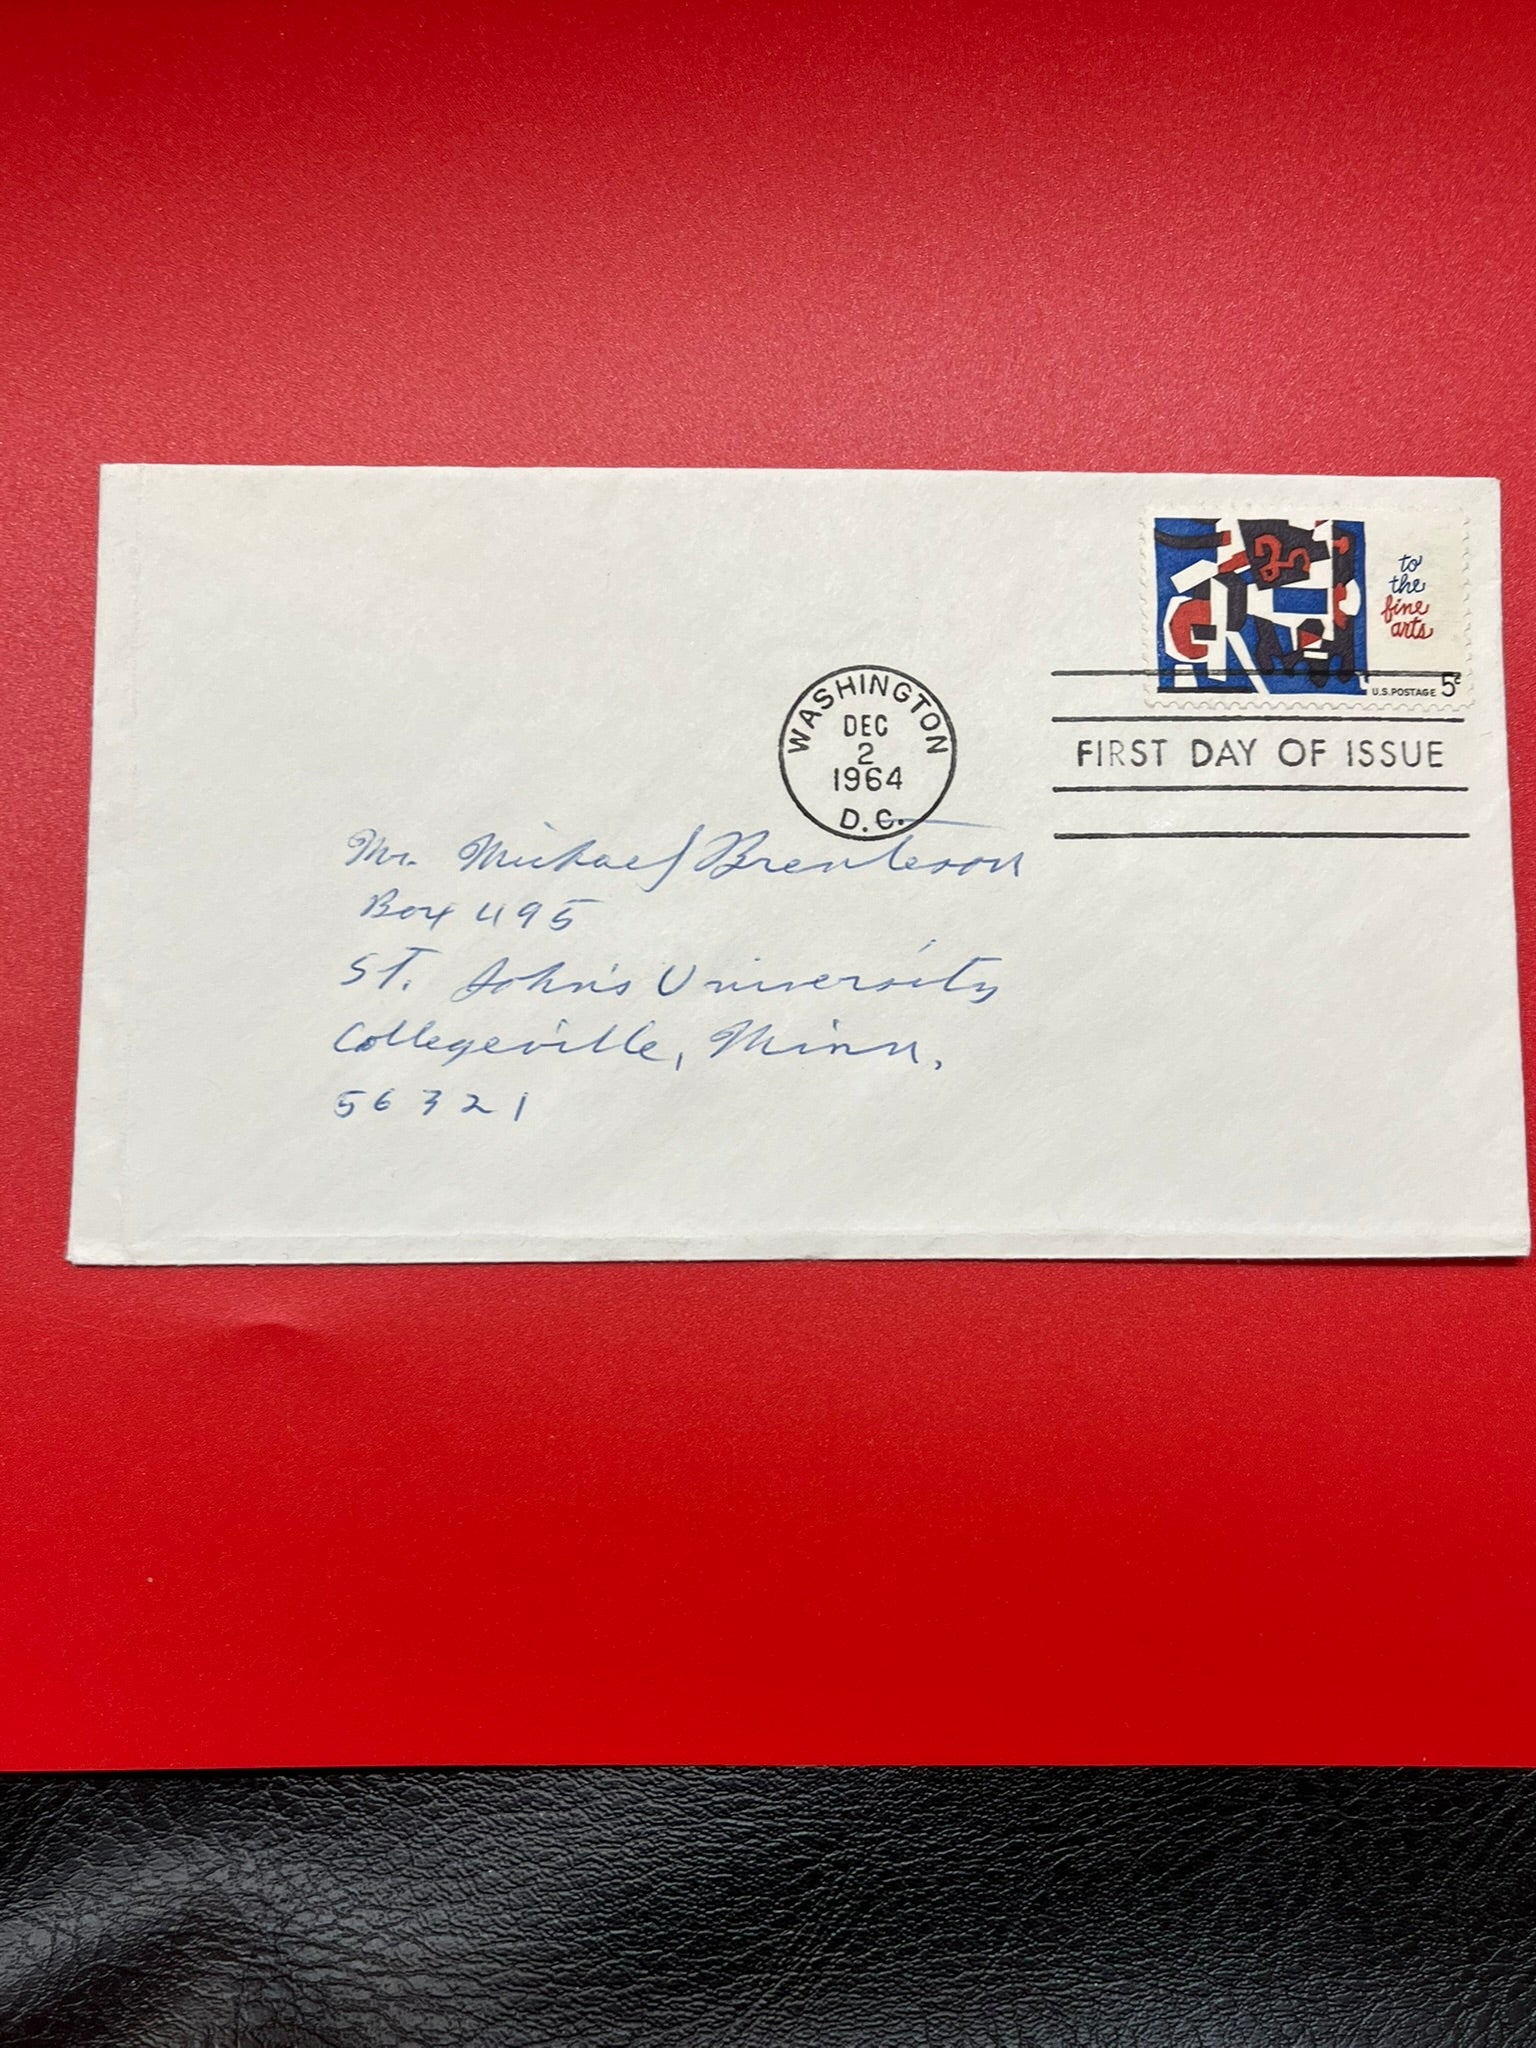 to
the
fine
arts
U.S. POSTAGE 5¢
WASHINGTON
DEC
2
1964
D.C.
FIRST DAY OF ISSUE
Mr. Michael Brenteson
Box 495
St. John's University
Collegeville, Minn.
56321